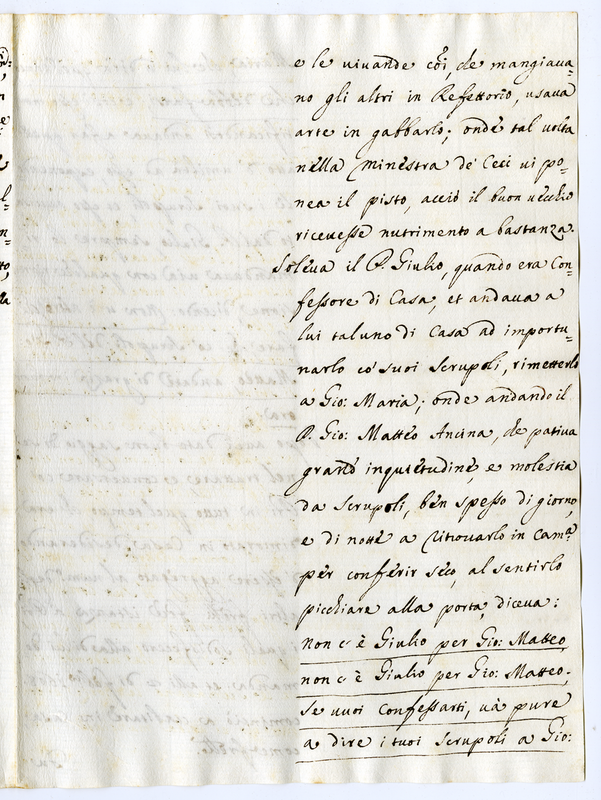 e le vivande cõi, che mangiava=
no gli altri in Refettorio, usava
arte in gabbarlo; onde tal volta
nella minestra de' Ceci vi po=
nea il pisto, acciò il buon vecchio
ricevesse nutrimento a bastanza.
Soleva il P. Giulio, quando era Con=
fessore di Casa, et andava a
lui taluno di Casa ad importu=
narlo co' suoi scrupoli, rimetterlo
a Gio: Maria; onde andando il
P. Gio: Matteo Ancina, che pativa
grand' inquietudine, e molestia
da scrupoli, ben spesso di giorno,
e di notte a ritrovarlo in Camª
per conferir seco, al sentirlo
picchiare alla porta, diceva:
Non c' è Giulio per Gio: Matteo,
non c' è Giulio per Gio: Matteo;
se vuoi Confessarti, và pure
a dire i tuoi scrupoli a Gio: